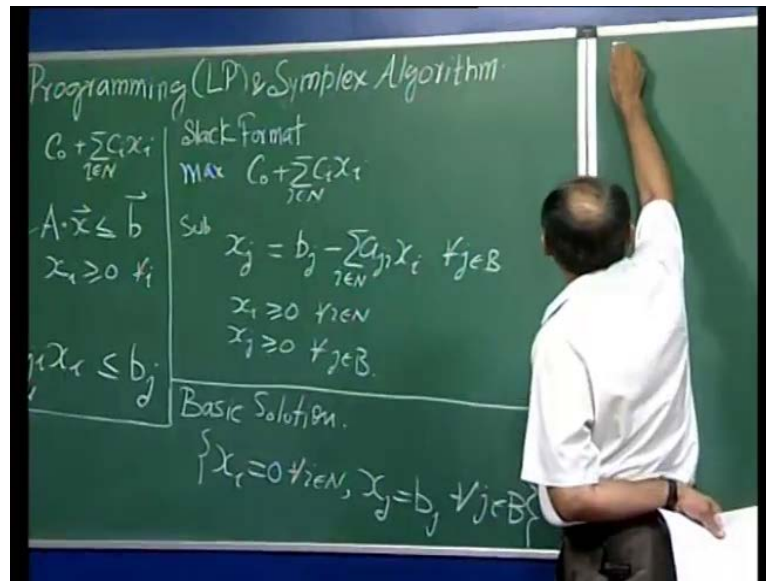 Programming (LP) & Symplex Algorithm
C₀ + ∑ Cᵢxᵢ
i∈N
A·x⃗ ≤ b⃗
xᵢ ≥ 0 ∀i
xᵢ ≤ bⱼ
Slack Format
Max C₀ + ∑ Cᵢxᵢ
i∈N
Sub
xⱼ = bⱼ - ∑ aⱼᵢxᵢ ∀j∈B
i∈N
xᵢ ≥ 0 ∀i∈N
xⱼ ≥ 0 ∀j∈B.
Basic Solution.
{xᵢ = 0 ∀i∈N, xⱼ = bⱼ ∀j∈B}